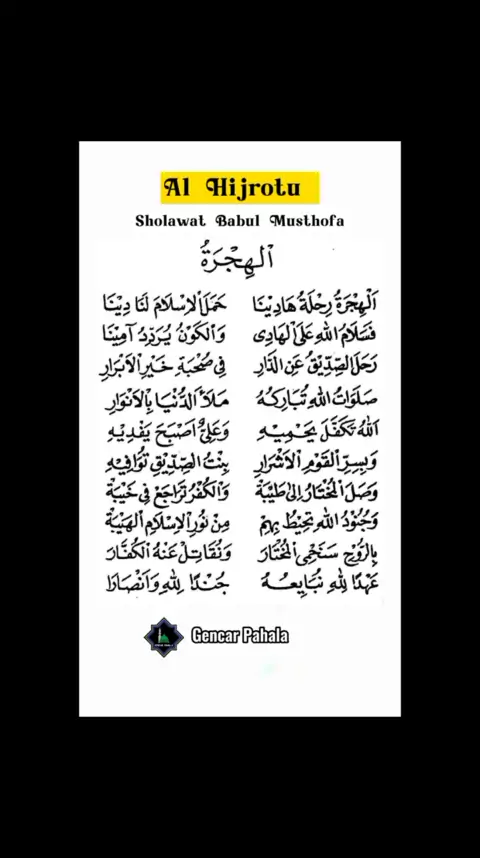 Al Hijrotu
Sholawat Babul Musthofa
اَلْهِجْرَةُ
اَلْهِجْرَةُ رِحْلَةُ هَادِيْنَا حَمَلَ الْاِسْلَامَ لَنَا دِيْنَا
فَسَلَامُ اللهِ عَلَى الْهَادِى وَالْكَوْنُ يُرَدِّدُ آمِيْنَا
رَحَلَ الصِّدِّيْقُ عَنِ الدَّارِ فِى صُحْبَةِ خَيْرِ الْاَبْرَارِ
صَلَوَاتُ اللهِ تُبَارِكُهُ مَلَأَ الدُّنْيَا بِالْاَنْوَارِ
اَللهُ تَكَفَّلَ يَحْمِيْهِ وَعَلِيٌّ اَصْبَحَ يَفْدِيْهِ
وَبِسِرِّ الْقَوْمِ الْاَشْرَارِ بِنْتُ الصِّدِّيْقِ تُوَافِيْهِ
وَصَلَ الْمُخْتَارُ اِلَى طَيْبَةْ وَالْكُفْرُ تَرَاجَعَ فِى خَيْبَةْ
وَجُنُوْدُ اللهِ تُحِيْطُ بِهِمْ مِنْ نُوْرِ الْاِسْلَامِ الْهَيْبَةْ
بِالرُّوْحِ سَنَحْمِى الْمُخْتَارَ وَنُقَاتِلُ عَنْهُ الْكُفَّارَ
عَهْدًا لِلهِ نُبَايِعُهُ جُنْدًا لِلهِ وَاَنْصَارًا
Gencar Pahala